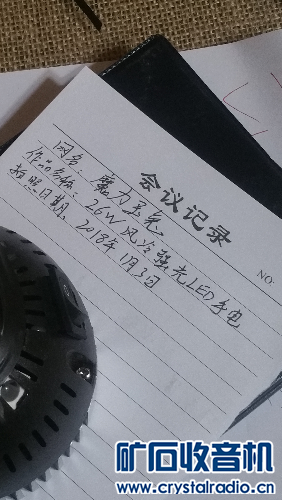 会议记录
NO:
网名：魔力互克
作品名称：26W风冷强光LED手电
拍照日期：2018年1月3日
矿石收音机
www.crystalradio.cn